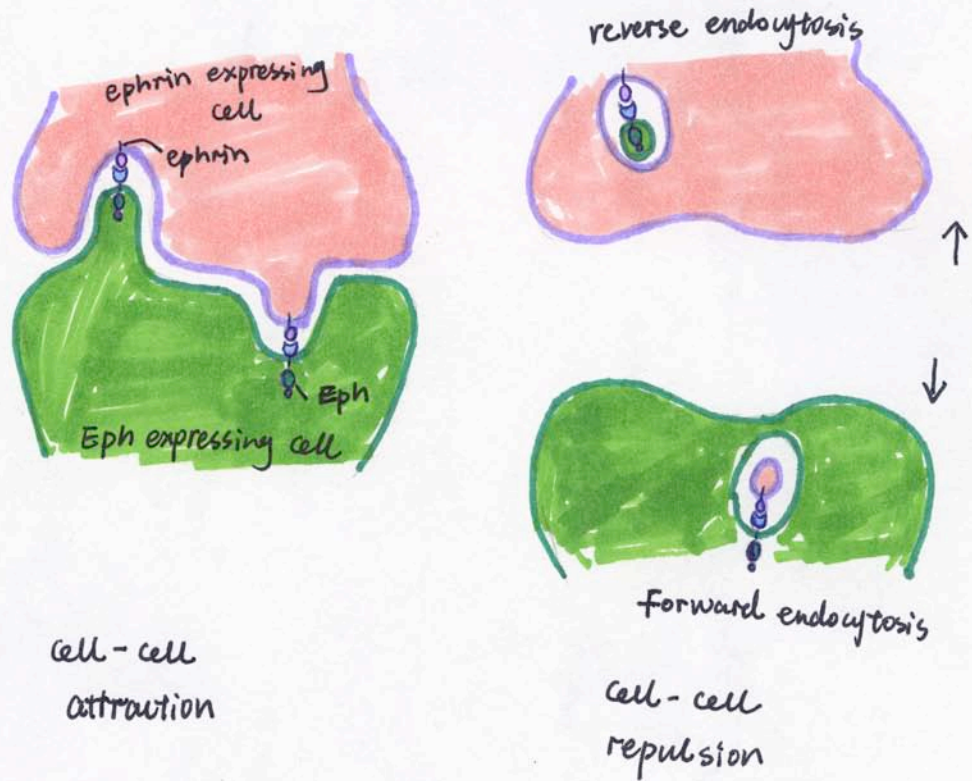 ephrin expressing
cell
ephrin
Eph
Eph expressing cell
cell-cell
attraction
reverse endocytosis
Forward endocytosis
cell-cell
repulsion